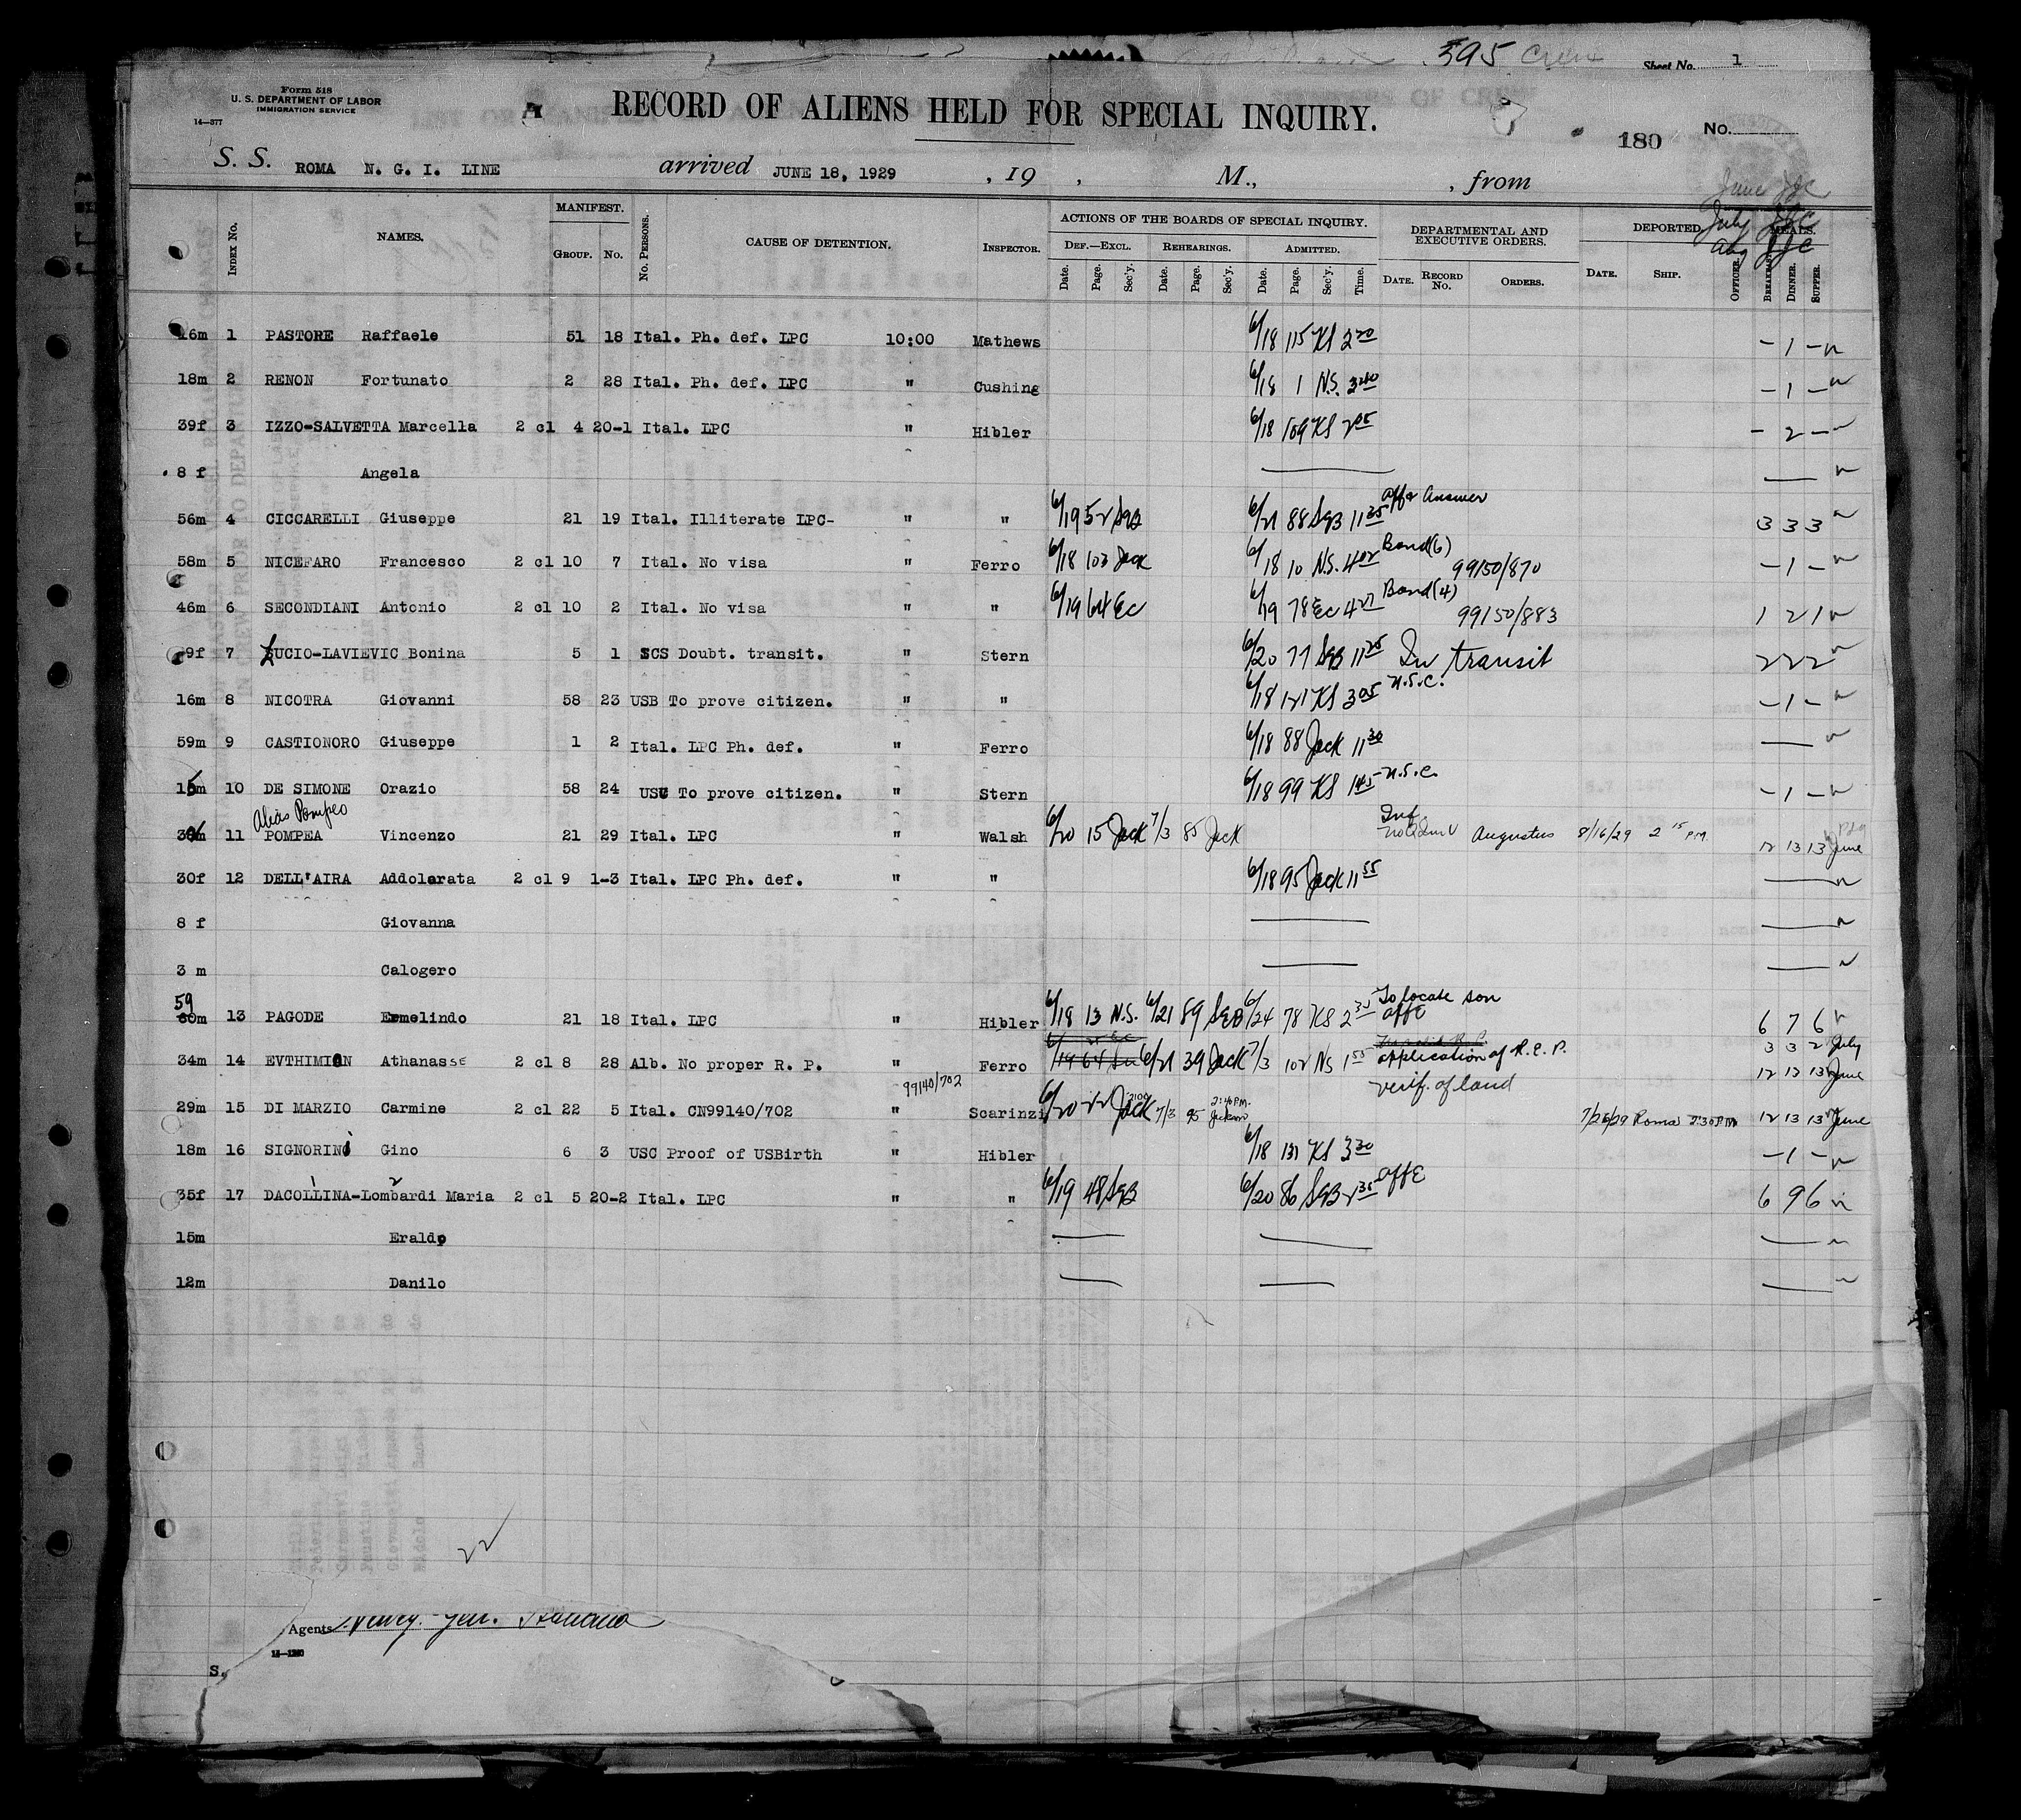 395 Crew Sheet No. 1
Form 518
U. S. DEPARTMENT OF LABOR
IMMIGRATION SERVICE
14—377
RECORD OF ALIENS HELD FOR SPECIAL INQUIRY.
180 No.
S. S. ROMA N. G. I. LINE arrived JUNE 18, 1929 , 19 , M., , from
June JJC
July JJC
Aug JJC
INDEX No. NAMES. MANIFEST. GROUP. No. No. PERSONS. CAUSE OF DETENTION. INSPECTOR. ACTIONS OF THE BOARDS OF SPECIAL INQUIRY. DEPARTMENTAL AND EXECUTIVE ORDERS. DEPORTED MEALS.
DEF.—EXCL. REHEARINGS. ADMITTED.
Date. Page. Sec'y. Date. Page. Sec'y. Date. Page. Sec'y. Time. DATE. RECORD No. ORDERS. DATE. SHIP. OFFICER. BREAKFAST. DINNER. SUPPER.
16m 1 PASTORE Raffaele 51 18 Ital. Ph. def. LPC 10:00 Mathews 6/18 115 KS 2 20 – 1 –
18m 2 RENON Fortunato 2 28 Ital. Ph. def. LPC " Cushing 6/18 1 N.S. 3 40 – 1 –
39f 3 IZZO-SALVETTA Marcella 2 cl 4 20-1 Ital. LPC " Hibler 6/18 109 KS 2 05 – 2 –
8 f Angela
56m 4 CICCARELLI Giuseppe 21 19 Ital. Illiterate LPC- " " 6/19 52 SgB 6/21 88 SgB 11 35 affr answer 3 3 3
58m 5 NICEFARO Francesco 2 cl 10 7 Ital. No visa " Ferro 6/18 103 Jack 6/18 10 N.S. 4 02 Bond (6) 99150/870 – 1 –
46m 6 SECONDIANI Antonio 2 cl 10 2 Ital. No visa " " 6/19 64 EC 6/19 78 EC 4 27 Bond (4) 99150/883 1 2 1
9f 7 LUCIO-LAVIEVIC Bonina 5 1 SCS Doubt. transit. " Stern 6/20 77 SgB 11 25 In transit 2 2 2
16m 8 NICOTRA Giovanni 58 23 USB To prove citizen. " " 6/18 121 KS 3 05 U.S.C. – 1 –
59m 9 CASTIONORO Giuseppe 1 2 Ital. LPC Ph. def. " Ferro 6/18 88 Jack 11 30
15m 10 DE SIMONE Orazio 58 24 USC To prove citizen. " Stern 6/18 99 KS 1 45 U.S.C. – 1 –
Alias Pompeo
11 POMPEA Vincenzo 21 29 Ital. LPC " Walsh 6/20 15 Jack 7/3 85 Jack Augustus 8/16/29 2 15 PM 12 13 13 June
30f 12 DELL'AIRA Addolorata 2 cl 9 1-3 Ital. LPC Ph. def. " " 6/18 95 Jack 11 55
8 f Giovanna
3 m Calogero
59
60m 13 PAGODE Ermelindo 21 18 Ital. LPC Hibler 6/18 13 N.S. 6/21 89 SgB 6/24 78 KS 2 35 To locate son affE 6 7 6
3 3 2 July
34m 14 EVTHIMION Athanasse 2 cl 8 28 Alb. No proper R. P. " Ferro 6/19 64 6/21 39 Jack 7/3 102 NS 1 55 application of R.E.P. 12 12 13 June
99140/702 verif. of land
29m 15 DI MARZIO Carmine 2 cl 22 5 Ital. CN99140/702 " Scarinzi 6/20 22 Jack 7/3 95 2:40 PM. Jackson 7/26/29 Roma 2:30 PM 12 13 13 June
18m 16 SIGNORINI Gino 6 3 USC Proof of USBirth " Hibler 6/18 131 KS 3 30 – 1 –
35f 17 DACOLLINA-Lombardi Maria 2 cl 5 20-2 Ital. LPC " " 6/19 48 SgB 6/20 86 SgB 2 35 affE 6 9 6
15m Eraldo
12m Danilo
22
Agents Navig. Gen. Italiana
14—1240
S.